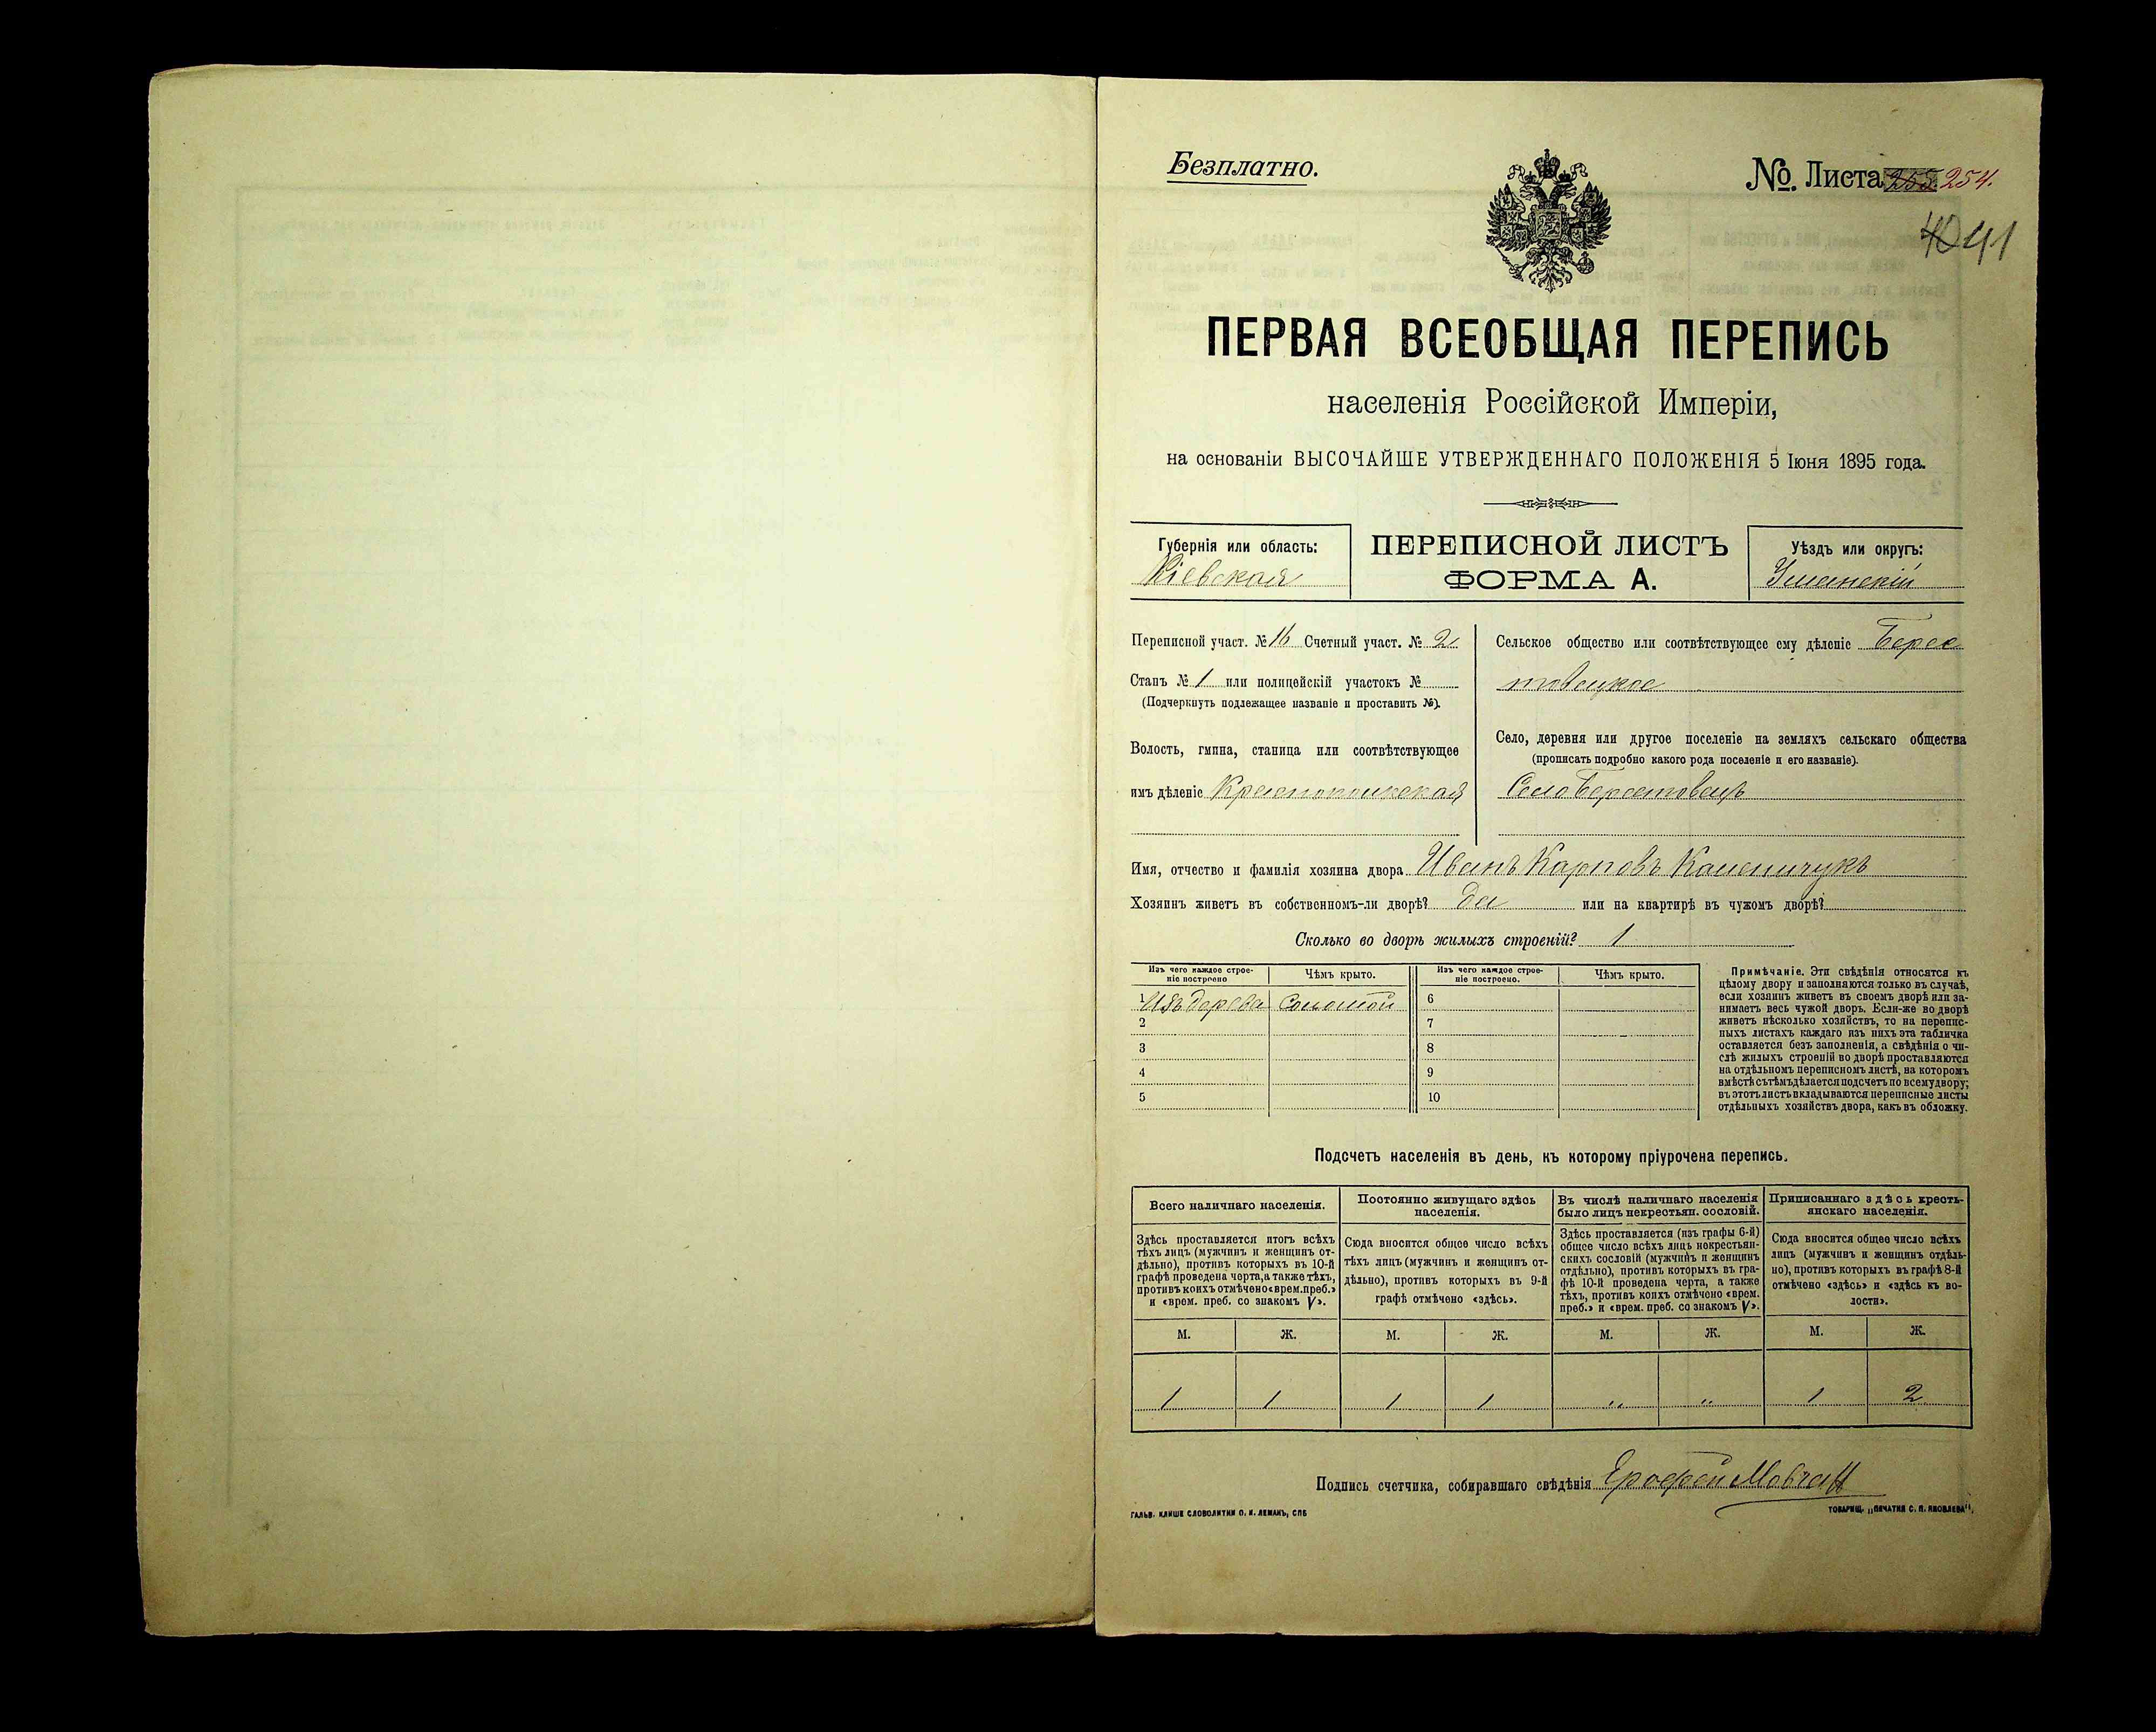 Безплатно.
№. Листа 255. 254.
40 41
ПЕРВАЯ ВСЕОБЩАЯ ПЕРЕПИСЬ
населенія Россійской Имперіи,
на основаніи ВЫСОЧАЙШЕ УТВЕРЖДЕННАГО ПОЛОЖЕНІЯ 5 Іюня 1895 года.
Губернія или область:
Кіевская
ПЕРЕПИСНОЙ ЛИСТЪ
ФОРМА А.
Уѣздъ или округъ:
Уманскій
Переписной участ. № 16 Счетный участ. № 2
Станъ № 1 или полицейскій участокъ №
(Подчеркнуть подлежащее названіе и проставить №).
Волость, гмина, станица или соотвѣтствующее
имъ дѣленіе
Сельское общество или соотвѣтствующее ему дѣленіе Берес
товецкое
Село, деревня или другое поселеніе на земляхъ сельскаго общества
(прописать подробно какого рода поселеніе и его названіе).
Село Берестовецъ
Имя, отчество и фамилія хозяина двора Иванъ Карповъ
Хозяинъ живетъ въ собственномъ-ли дворѣ? Да или на квартирѣ въ чужомъ дворѣ?
Сколько во дворѣ жилыхъ строеній? 1
Изъ чего каждое строе-
ніе построено
Чѣмъ крыто.
Изъ чего каждое строе-
ніе построено.
Чѣмъ крыто.
1 Изъ дерева Соломой 6
2 7
3 8
4 9
5 10
Примѣчаніе. Эти свѣдѣнія относятся къ
цѣлому двору и заполняются только въ случаѣ,
если хозяинъ живетъ въ своемъ дворѣ или за-
нимаетъ весь чужой дворъ. Если-же во дворѣ
живетъ нѣсколько хозяйствъ, то на перепис-
ныхъ листахъ каждаго изъ нихъ эта табличка
оставляется безъ заполненія, а свѣдѣнія о чи-
слѣ жилыхъ строеній во дворѣ проставляются
на отдѣльномъ переписномъ листѣ, на которомъ
вмѣстѣ съ тѣмъ дѣлается подсчетъ по всему двору;
въ этотъ листъ вкладываются переписные листы
отдѣльныхъ хозяйствъ двора, какъ въ обложку.
Подсчетъ населенія въ день, къ которому пріурочена перепись.
Всего наличнаго населенія.
Здѣсь проставляется итогъ всѣхъ
тѣхъ лицъ (мужчинъ и женщинъ от-
дѣльно), противъ которыхъ въ 10-й
графѣ проведена черта, а также тѣхъ,
противъ коихъ отмѣчено «врем. преб.»
и «врем. преб. со знакомъ V».
Постоянно живущаго здѣсь
населенія.
Сюда вносится общее число всѣхъ
тѣхъ лицъ (мужчинъ и женщинъ от-
дѣльно), противъ которыхъ въ 9-й
графѣ отмѣчено «здѣсь».
Въ числѣ наличнаго населенія
было лицъ некрестьян. сословій.
Здѣсь проставляется (изъ графы 6-й)
общее число всѣхъ лицъ некрестьян-
скихъ сословій (мужчинъ и женщинъ
отдѣльно), противъ которыхъ въ гра-
фѣ 10-й проведена черта, а также
тѣхъ, противъ коихъ отмѣчено «врем.
преб.» и «врем. преб. со знакомъ V».
Приписаннаго здѣсь кресть-
янскаго населенія.
Сюда вносится общее число всѣхъ
лицъ (мужчинъ и женщинъ отдѣль-
но), противъ которыхъ въ графѣ 8-й
отмѣчено «здѣсь» и «здѣсь къ во-
лости».
М. Ж. М. Ж. М. Ж. М. Ж.
1 1 1 1 " " 1 2
Подпись счетчика, собиравшаго свѣдѣнія Ерофей Мовчан
ГАЛЬВ. КЛИШЕ СЛОВОЛИТНИ О. И. ЛЕМАНЪ, СПБ
ТОВАРИЩ. „ПЕЧАТНЯ С. П. ЯКОВЛЕВА".